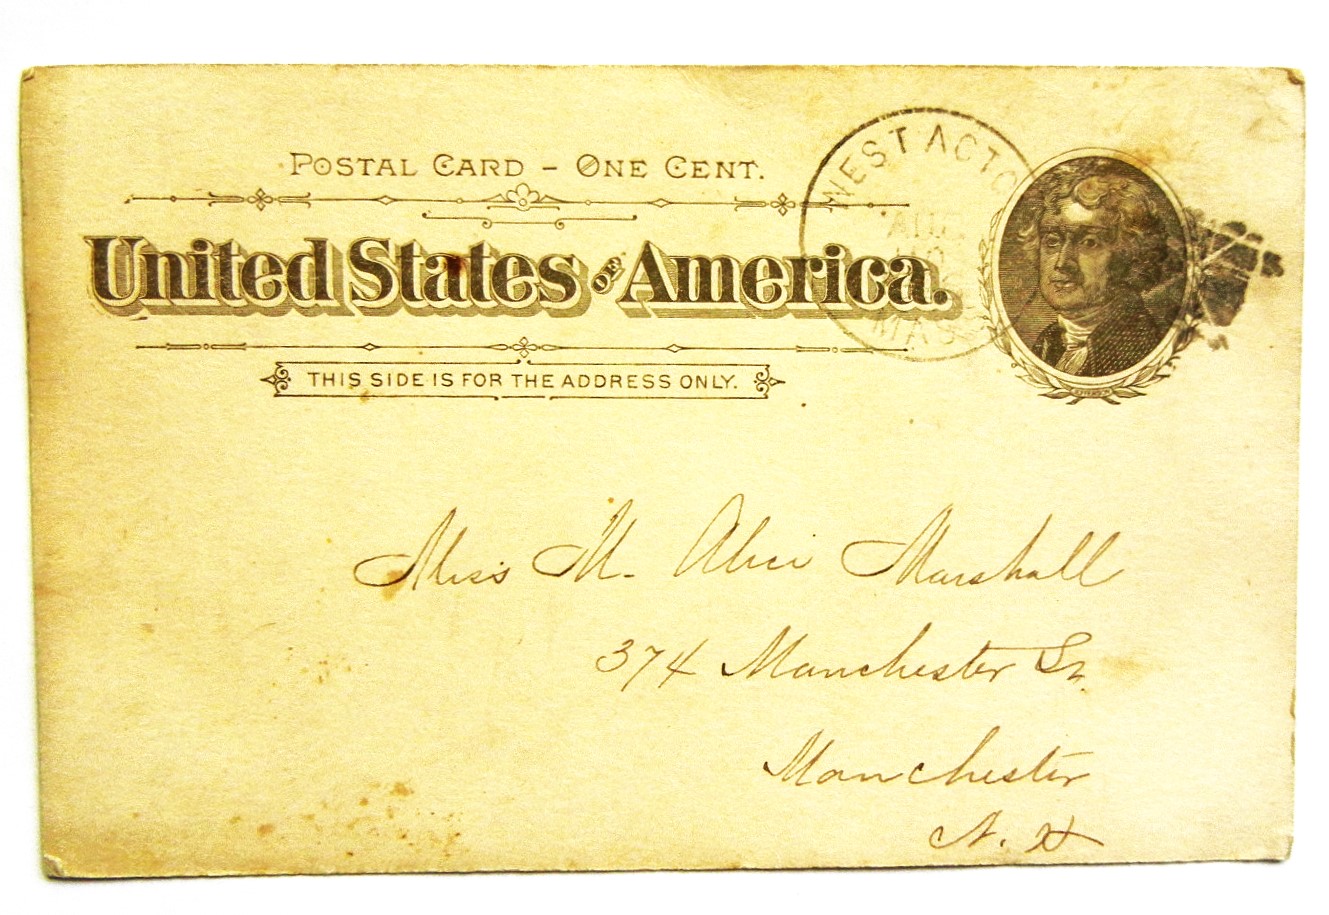 POSTAL CARD – ONE CENT.
WEST ACTO
AUG
United States OF America.
MASS
THIS SIDE IS FOR THE ADDRESS ONLY.
Miss M. Alice Marshall
374 Manchester St.
Manchester
N. H